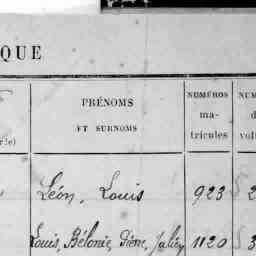 QUE
PRÉNOMS
ET SURNOMS
NUMÉROS
ma-
tricules
NUM
d
vol
Léon, Louis 923 2
Louis, Bélonie, Pierre, Julien 1120 3